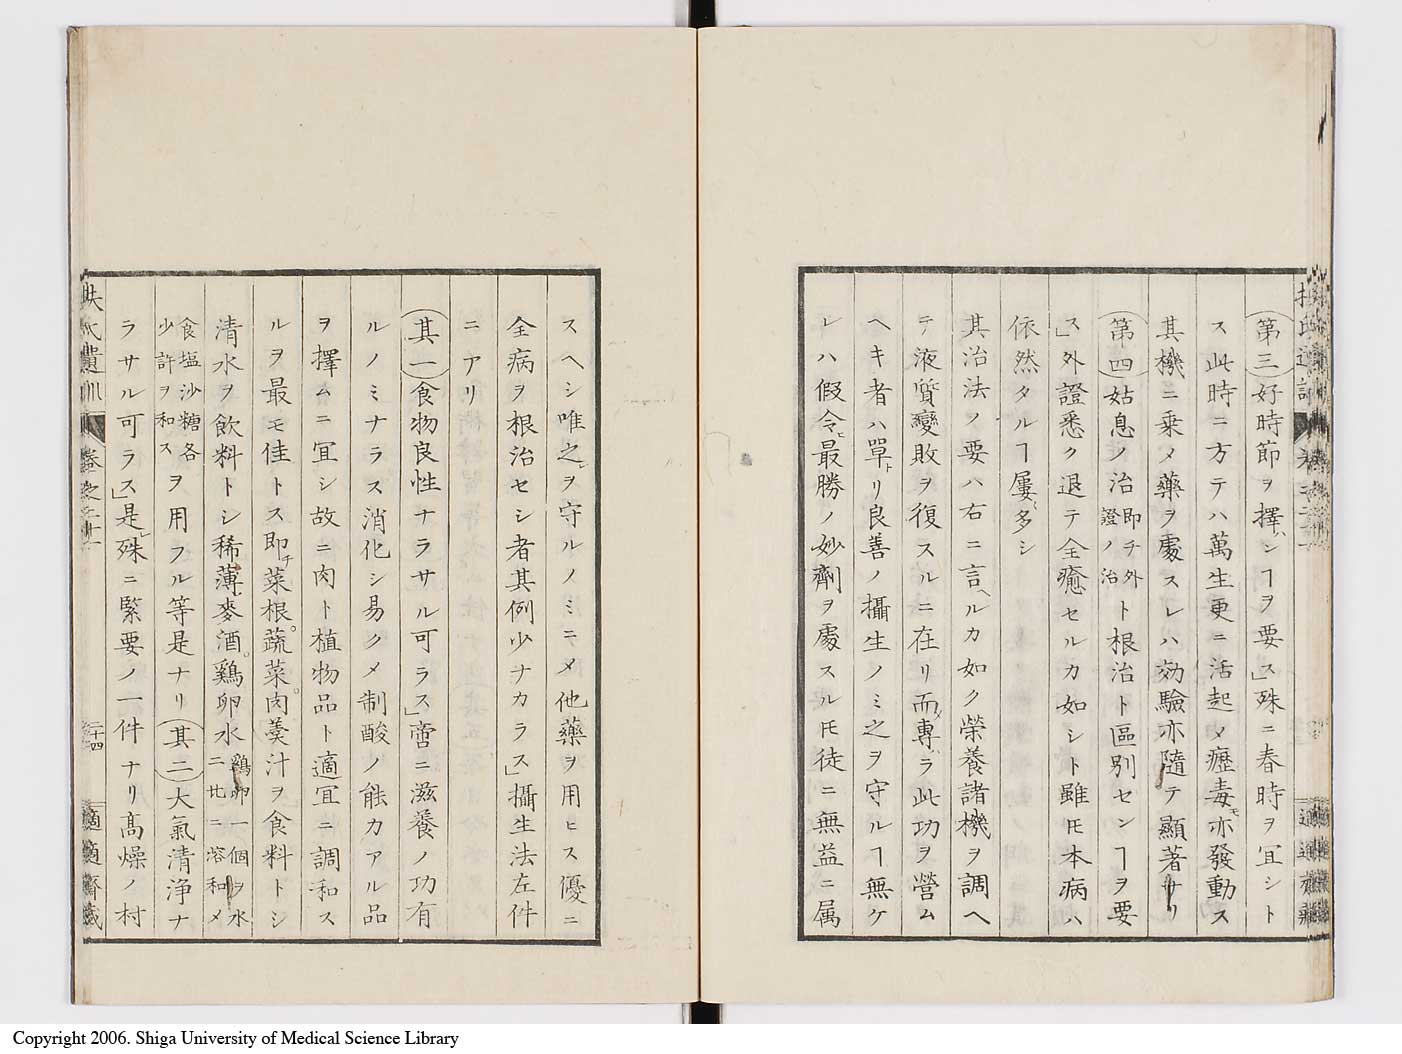 第三好時節ヲ擇ンヿヲ要ス」殊ニ春時ヲ宜シト
ス此時ニ方テハ萬生更ニ活起〆瘞毒モ亦發動ス
其機ニ乗〆藥ヲ處スレハ効驗亦隨テ顯著ナリ
第四姑息ノ治即チ外證ノ治ト根治ト區別センヿヲ要
ス」外證悉ク退テ全癒セルカ如シト雖𪜈本病ハ
依然タルヿ屢多シ
其治法ノ要ハ右ニ言ヘルカ如ク榮養諸機ヲ調ヘ
テ液質變敗ヲ復スルニ在リ而〆專ラ此功ヲ營ム
ヘキ者ハ單リ良善ノ攝生ノミ之ヲ守ルヿ無ケ
レハ假令最勝ノ妙劑ヲ處スル𪜈徒ニ無益ニ属
スヘシ唯之ヲ守ルノミニ〆他藥ヲ用ヒス優ニ
全病ヲ根治セシ者其例少ナカラス」攝生法左件
ニアリ
其一食物良性ナラサル可ラス」啻ニ滋養ノ功有
ルノミナラス消化シ易ク〆制酸ノ能力アル品
ヲ擇ムニ宜シ故ニ肉ト植物品ト適宜ニ調和ス
ルヲ最モ佳トス即チ菜根。蔬菜。肉羹汁ヲ食料トシ
清水ヲ飲料トシ稀薄麥酒。鷄卵水鷄卵一個ヲ水二比ニ溶和〆
食塩沙糖各少許ヲ和スヲ用フル等是ナリ其二大氣清浄ナ
ラサル可ラス」是レ殊ニ緊要ノ一件ナリ髙燥ノ村
扶氏遺訓
巻之二十一
二十四
適適齋蔵
Copyright 2006. Shiga University of Medical Science Library